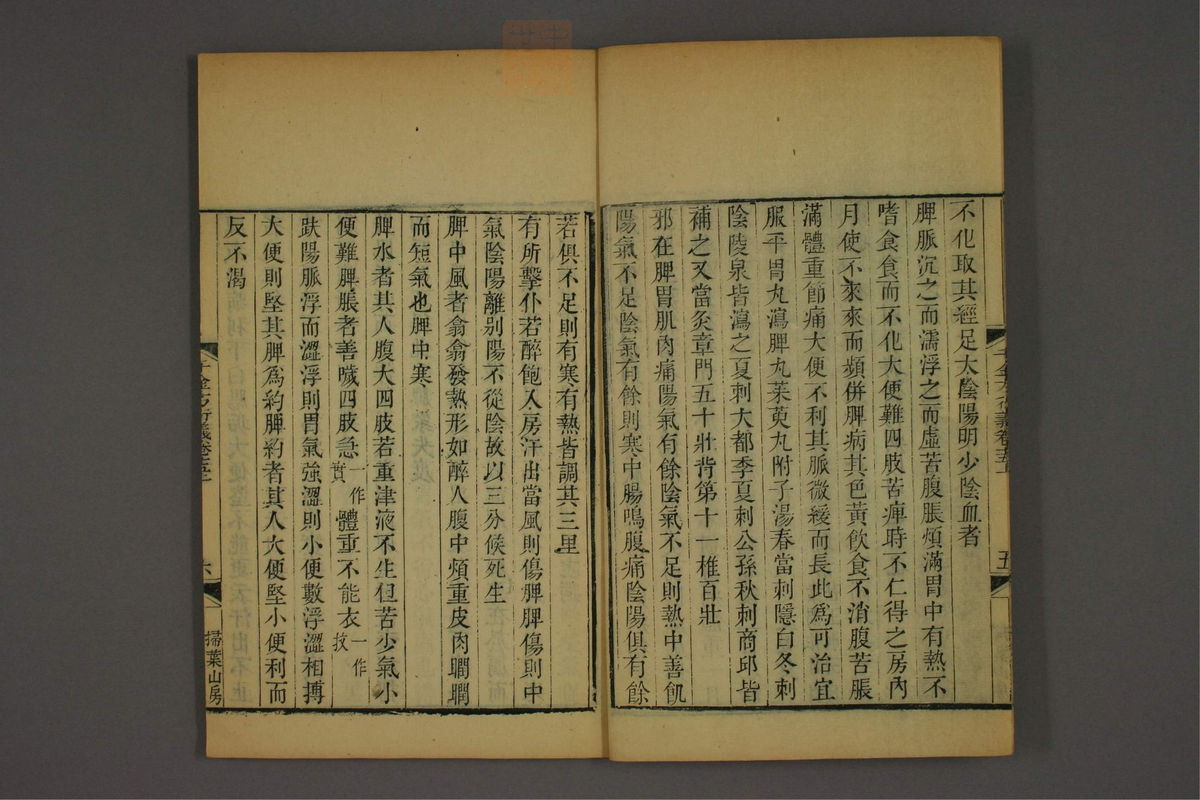 不化取其經足太陰陽明少陰血者
脾脈沉之而濡浮之而虛苦腹脹煩滿胃中有熱不
嗜食食而不化大便難四肢苦痺時不仁得之房內
月使不來來而頻併脾病其色黃飲食不消腹苦脹
滿體重節痛大便不利其脈微緩而長此爲可治宜
服平胃丸瀉脾丸茱萸丸附子湯春當刺隱白冬刺
陰陵泉皆瀉之夏刺大都季夏刺公孫秋刺商邱皆
補之又當灸章門五十壯背第十一椎百壯
邪在脾胃肌肉痛陽氣有餘陰氣不足則熱中善飢
陽氣不足陰氣有餘則寒中腸鳴腹痛陰陽俱有餘
五
若俱不足則有寒有熱皆調其三里
有所擊仆若醉飽入房汗出當風則傷脾脾傷則中
氣陰陽離別陽不從陰故以三分候死生
脾中風者翕翕發熱形如醉人腹中煩重皮肉瞤瞤
而短氣也脾中寒
脾水者其人腹大四肢苦重津液不生但苦少氣小
便難脾脹者善噦四肢急一作實體重不能衣一作收
趺陽脈浮而澀浮則胃氣強澀則小便數浮澀相搏
大便則堅其脾爲約脾約者其人大便堅小便利而
反不渴
千金方衍義卷
六
掃葉山房